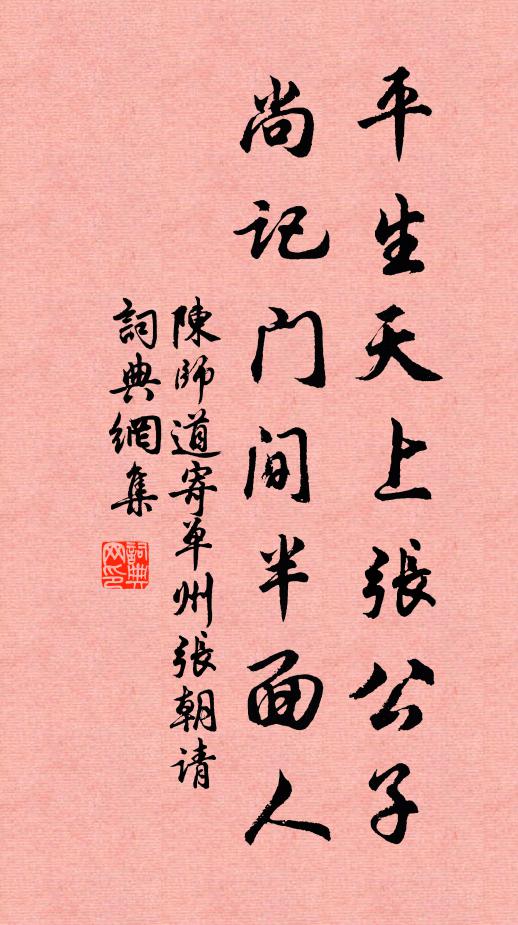 平生天上張公子
尚记门间半面人
陳師道寄单州張朝请
詞典網集
詞典
网印